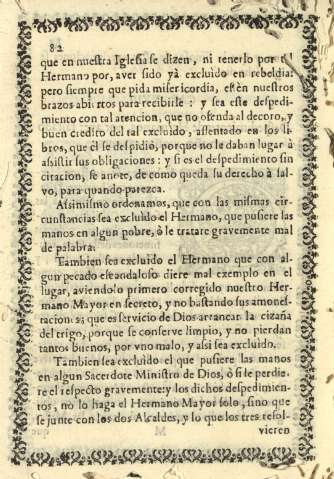 82
que en nuestra Iglesia se dizen, ni tenerlo por
Hermano por, aver sido yà excluido en rebeldia:
pero siempre que pida misericordia, estèn nuestros
brazos abiertos para recibirle: y sea este despedi-
miento con tal atencion, que no ofenda al decoro, y
buen credito del tal excluido, assentado en los li-
bros, que èl se despidiò, porque no le daban lugar à
assistir sus obligaciones: y si es el despedimiento sin
citacion, se anote, de como queda su derecho à sal-
vo, para quando parezca.
Assimismo ordenamos, que con las mismas cir-
cunstancias sea excluido el Hermano, que pusiere las
manos en algun pobre, ò le tratare gravemente mal
de palabra.
Tambien sea excluido el Hermano que con al-
gun pecado escandaloso diere mal exemplo en el
lugar, aviendolo primero corregido nuestro Her-
mano Mayor en secreto, y no bastando sus amones-
taciones; que es servicio de Dios arrancar la cizaña
del trigo, porque se conserve limpio, y no pierdan
tantos buenos, por vno malo, y assi sea excluido.
Tambien sea excluido el que pusiere las manos
en algun Sacerdote Ministro de Dios, ò si le perdie-
re el respecto gravemente: y los dichos despedimien-
tos, no lo haga el Hermano Mayor solo, sino que
se junte con los dos Alcaldes, y lo que los tres resol-
vieren